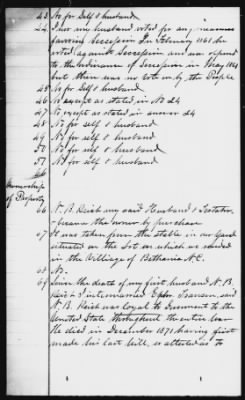 43 No for Self & husband
44 Nor my husband voted for any measures
favoring Secession In February 1861 he
voted against Secession and was opposed
to the Ordinance of Secession in May 1861
but there was no vote in by the People
45 No for Self & husband
46 No except as stated in No 44
47 No except as stated in answer 44
48 No for self & husband
49 No for self & husband
50 No for self & husband
51 No for self & husband
Ownership
of Property
66 N. B. Reich my said Husband & Testator
became the owner by purchase
67 It was taken from the Stable in our yard
situated on the Lot on which we resided
in the Village of Bethania N.C.
68 No.
69 Since the death of my first husband N. B.
Reich I intermarried Eph. Transou said
N. B. Reich was Loyal to Government to the
United State throughout the entire war
He died in December 1871 having first
made his last will, &c attested as to